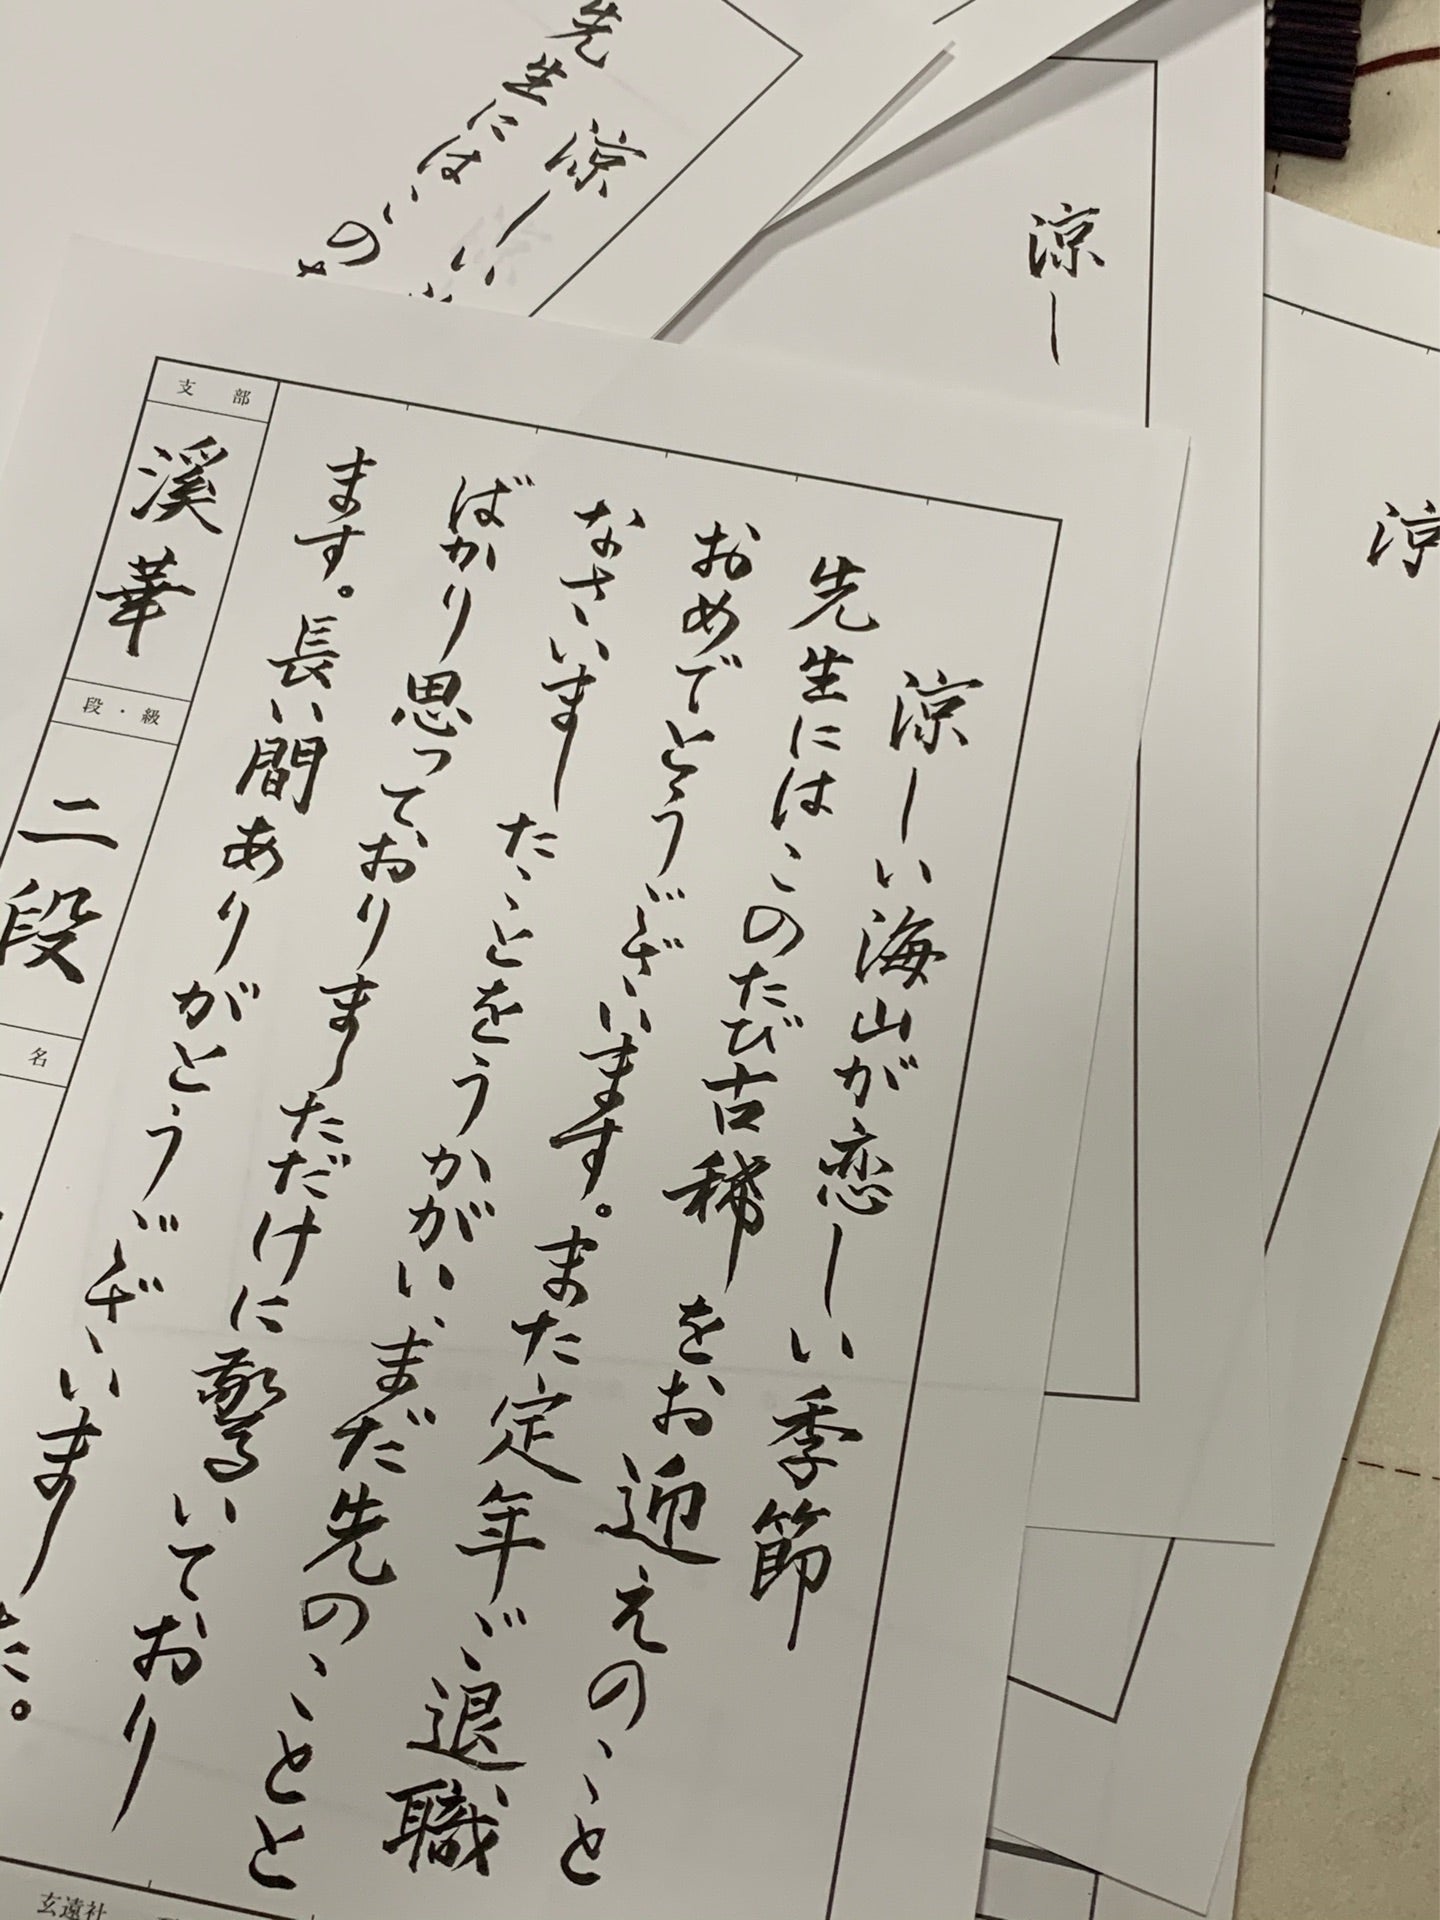 涼しい海山が恋しい季節
先生にはこのたび古稀をお迎えのこと
おめでとうございます。また定年ご退職
なさいましたことをうかがい、まだ先のことと
ばかり思っておりましただけに驚いており
ます。長い間ありがとうございました。
支部
溪華
段・級
二段
名
玄遠社
涼しい
先生にはいの
涼し
涼